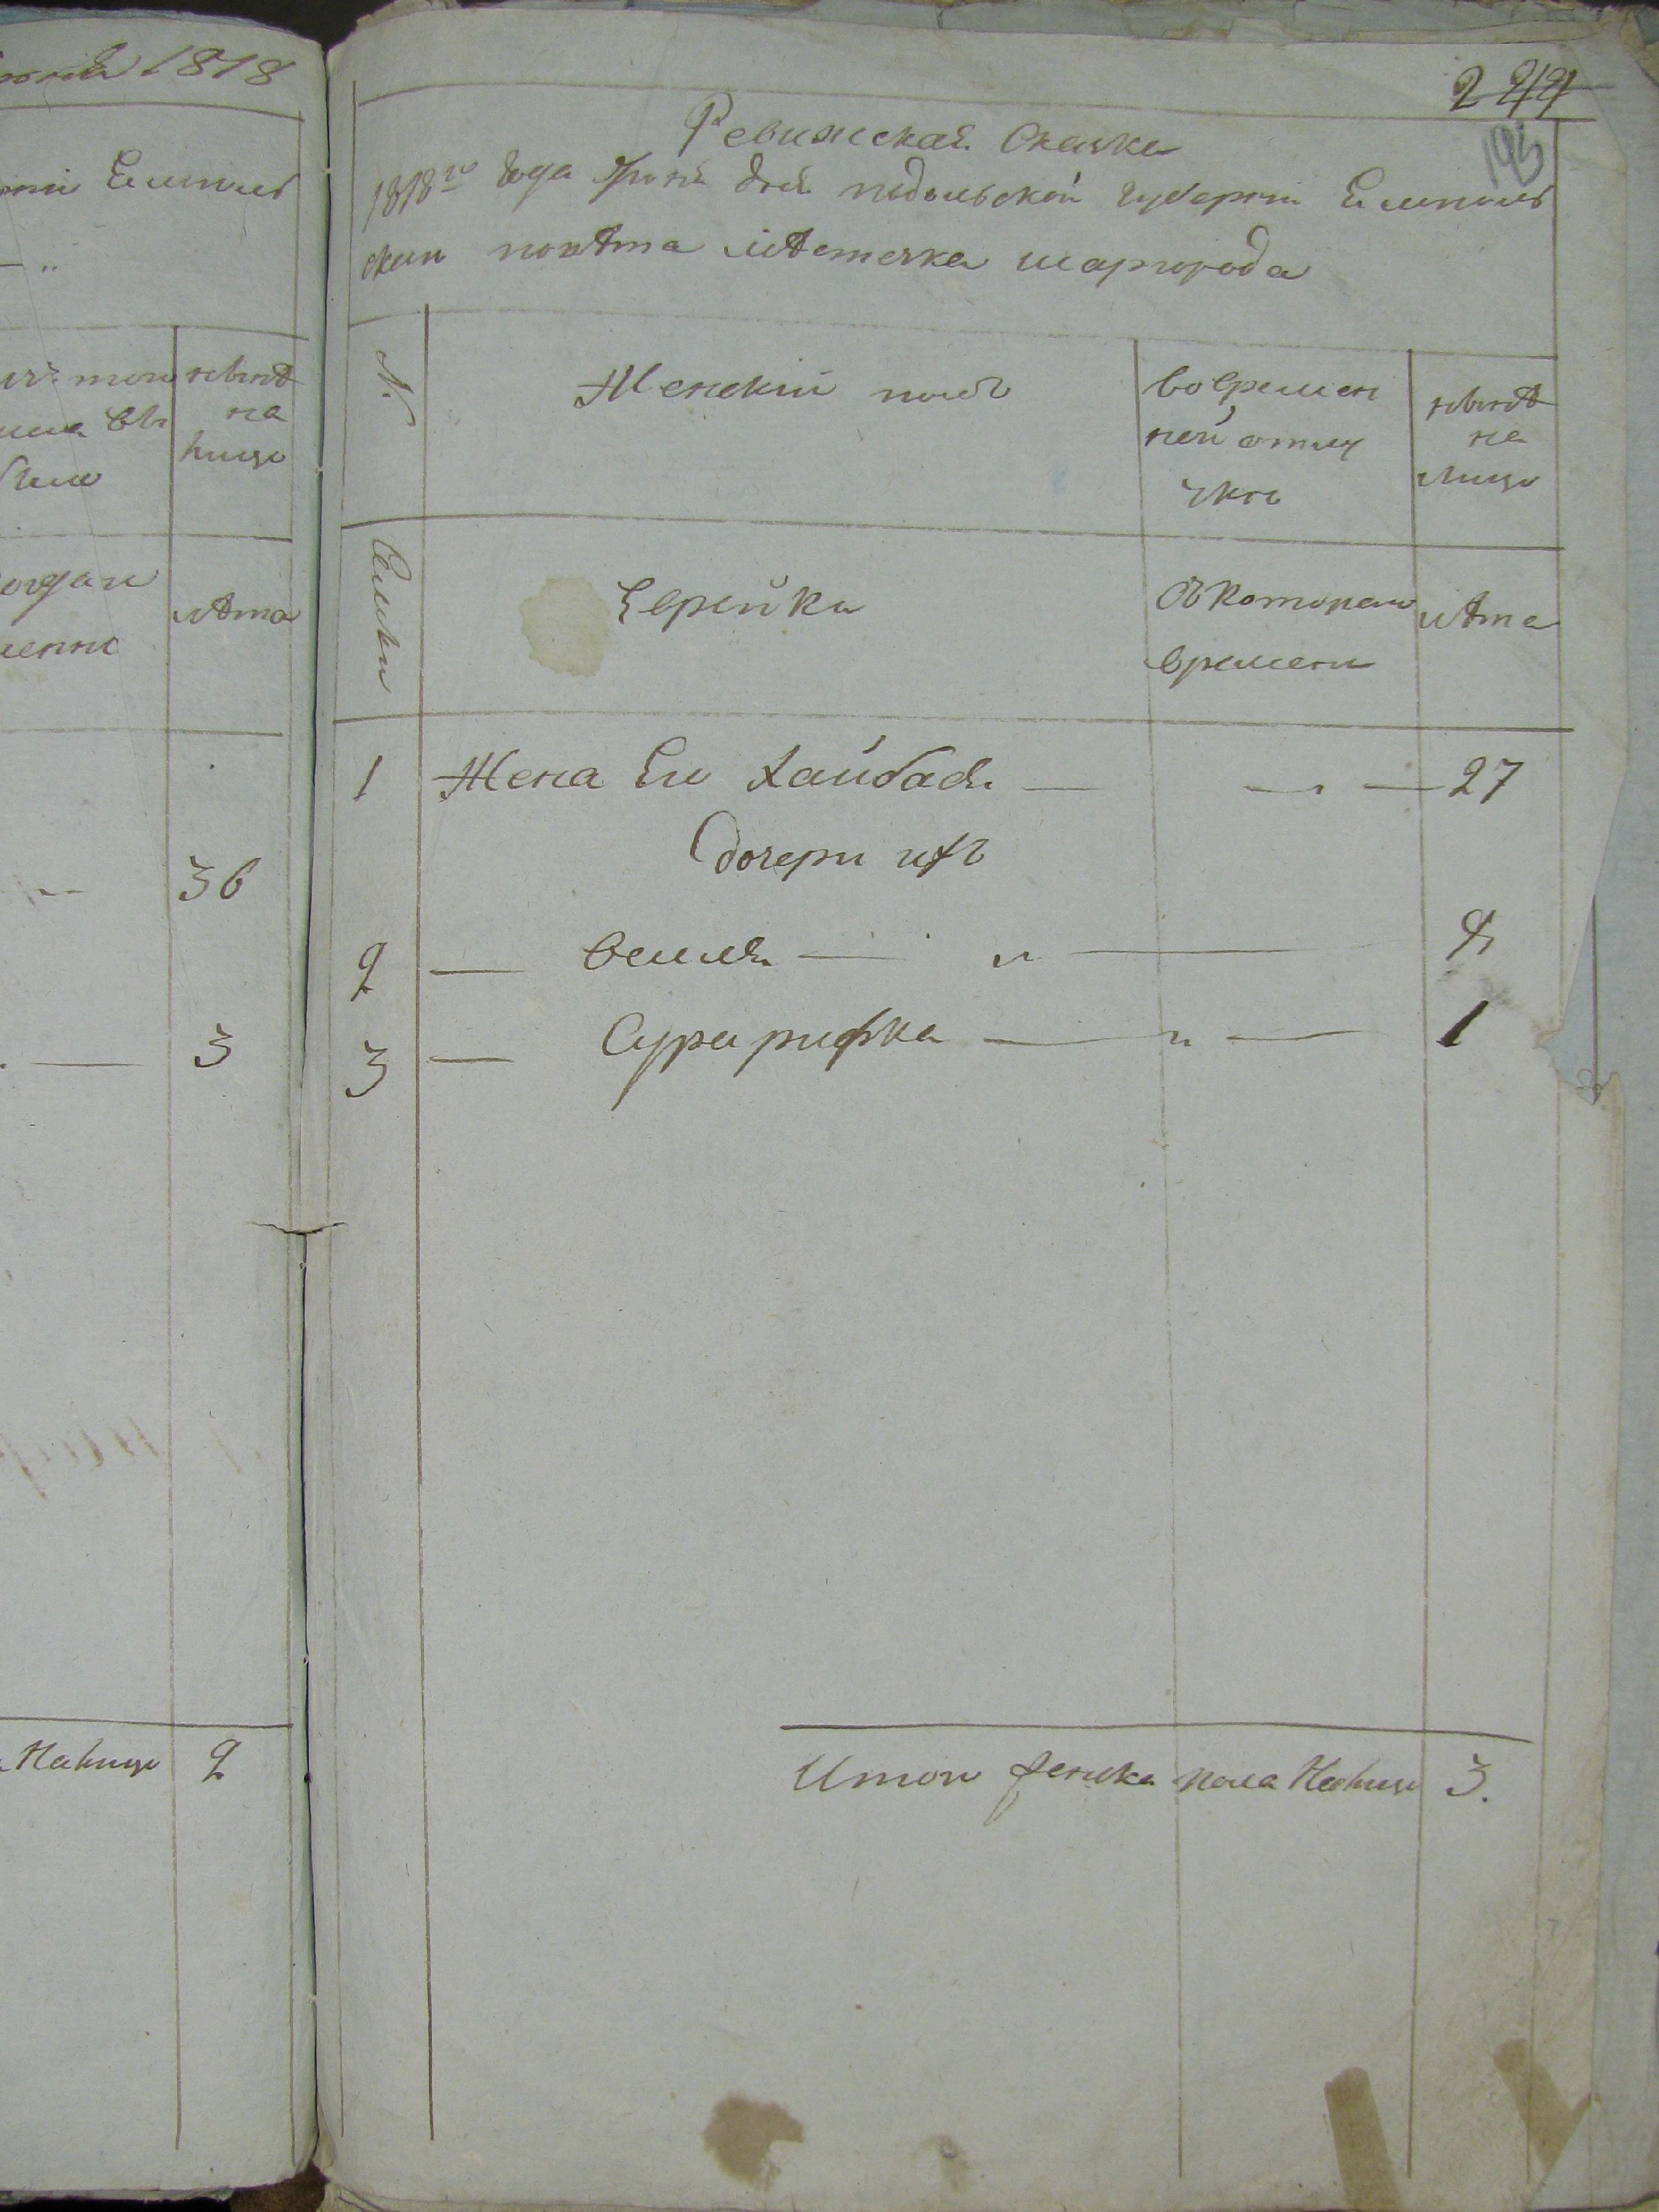 1818
36
3
На лицо 2
244
193
Ревижская Скаска
1818го года Июня дня подольской губернии Ямполь
ского повѣта мѣстечка шаргорода
№
Женскій полъ
во времен
ной отлу
чкѣ
нынѣ
на
лицо
Семьи
Еврейка
Съ котораго
времени
лѣта
1 Жена Его Хайбася — 27
дочери ихъ
2 — Вемля — 4
3 — Сура рифка — 1
Итого женска пола На лицо 3.